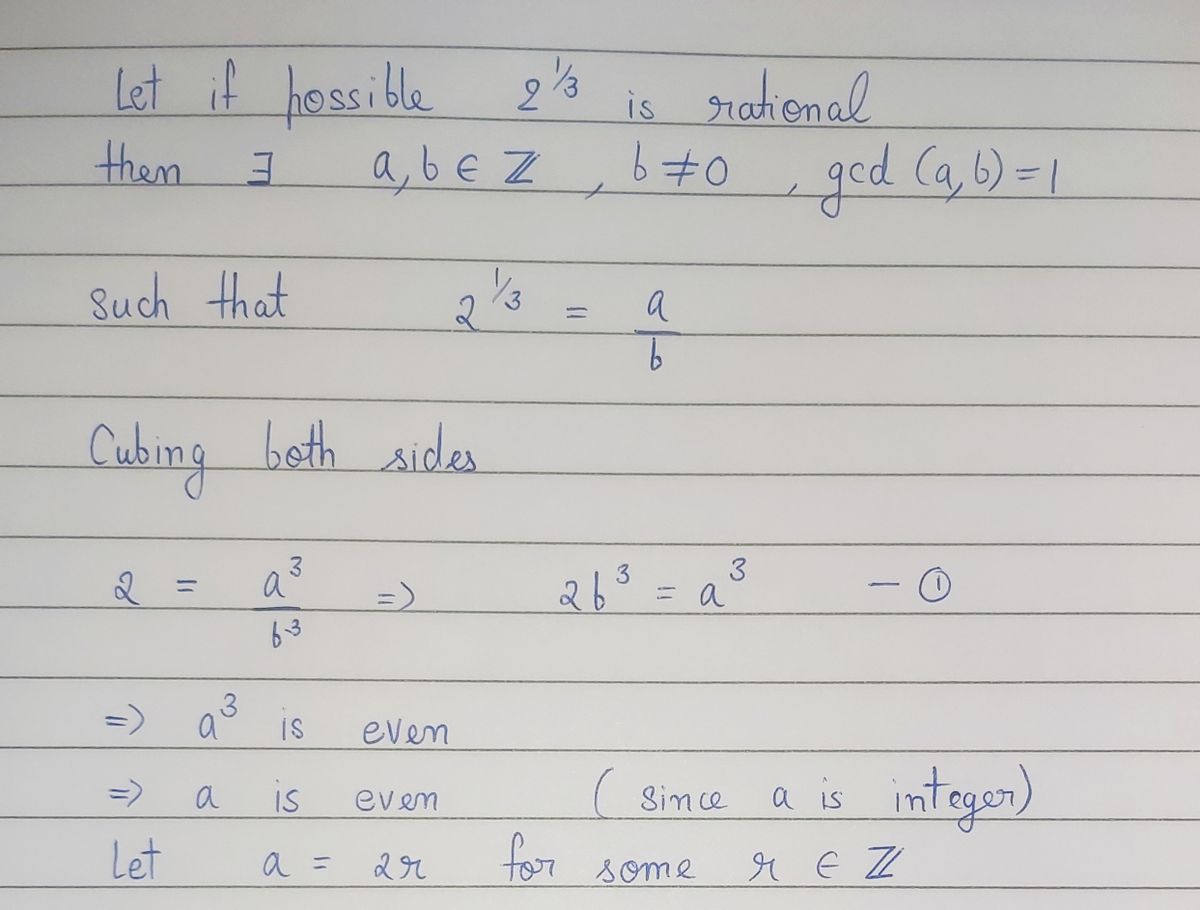 Let if possible 2^1/3 is rational
then ∃ a, b ∈ ℤ , b ≠ 0 , gcd (a, b) = 1
such that 2^1/3 = a/b
Cubing both sides
2 = a³/b³ => 2b³ = a³ — ①
=> a³ is even
=> a is even ( since a is integer)
Let a = 2r for some r ∈ ℤ